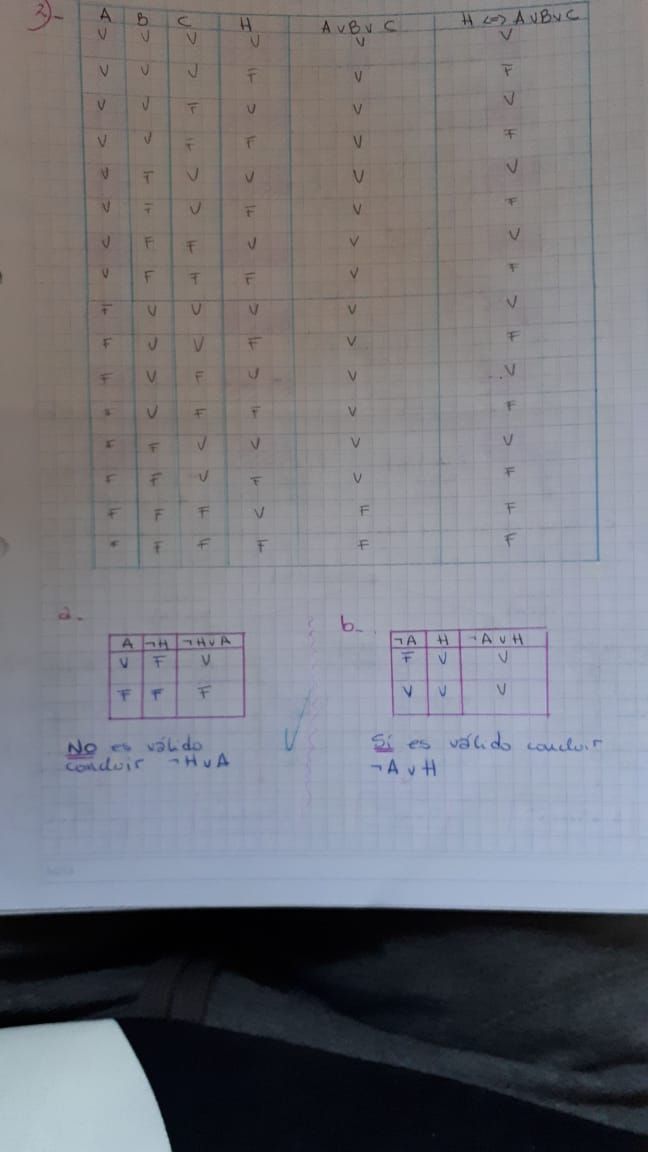 2)-
A B C H A v B v C H <=> A v B v C
V V V V V V
V V V F V F
V V F V V V
V V F F V F
V F V V V V
V F V F V F
V F F V V V
V F F F V F
F V V V V V
F V V F V F
F V F V V V
F V F F V F
F F V V V V
F F V F V F
F F F V F F
F F F F F F
a.
A ¬H ¬H v A
V F V
F F F
No es válido
concluir ¬H v A
b-
¬A H ¬A v H
F V V
V V V
Sí es válido concluir
¬A v H